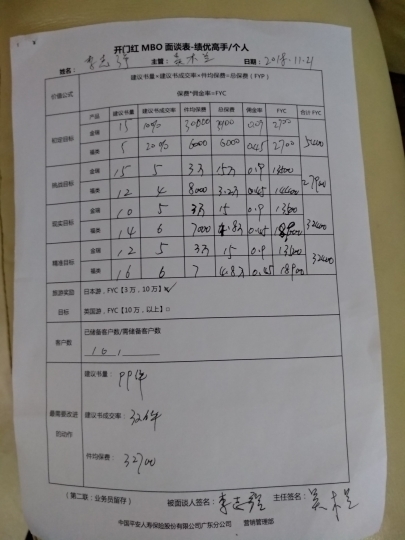 开门红 MBO 面谈表-绩优高手/个人
姓名: 李志强 主管: 日期: 2018.11.21
价值公式 建议书量*建议书成交率*件均保费=总保费 (FYP)
保费*佣金率=FYC
产品 建议书量 建议书成交率 件均保费 总保费 佣金率 FYC 合计 FYC
初定目标 金瑞 15 10% 30000 0.09 2700 5400
福类 5 20% 6000 6000 0.45 2700
挑战目标 金瑞 15 5 3万 15万 0.9
福类 12 4 8000 3.2万 0.45 14400
现实目标 金瑞 10 5 3万 15 0.9 13500 32400
福类 14 6 7000 4.8万 0.45
精准目标 金瑞 12 5 3万 15 0.9 13500 32400
福类 16 6 7 4.8万 0.45 18900
旅游奖励目标 日本游, FYC【3 万, 10 万】☑
美国游, FYC【10 万, 以上】□
客户数 已储备客户数/需储备客户数
161
最需要改进的动作 建议书量: 99件
建议书成交率: 32件
件均保费: 32700
(第二联:业务员留存) 被面谈人签名: 李志强 主任签名:
中国平安人寿保险股份有限公司广东分公司 营销管理部